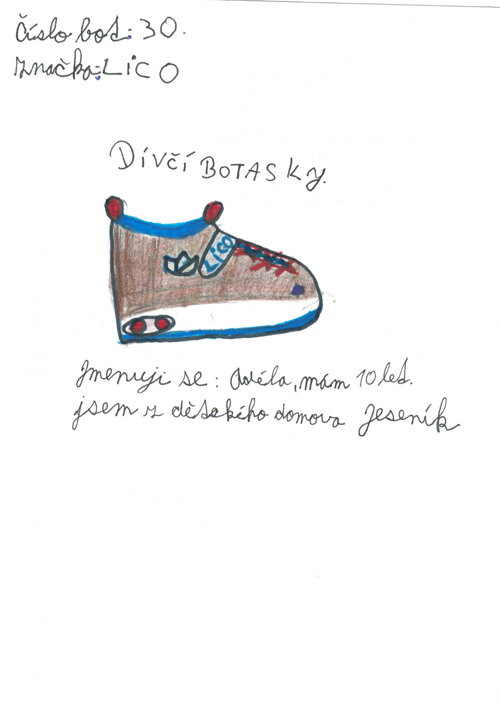 Číslo bot: 30.
značka: LICO
Dívčí BOTASky.
LICO
Jmenuji se: Adéla, mám 10 let.
jsem z dětského domova Jeseník